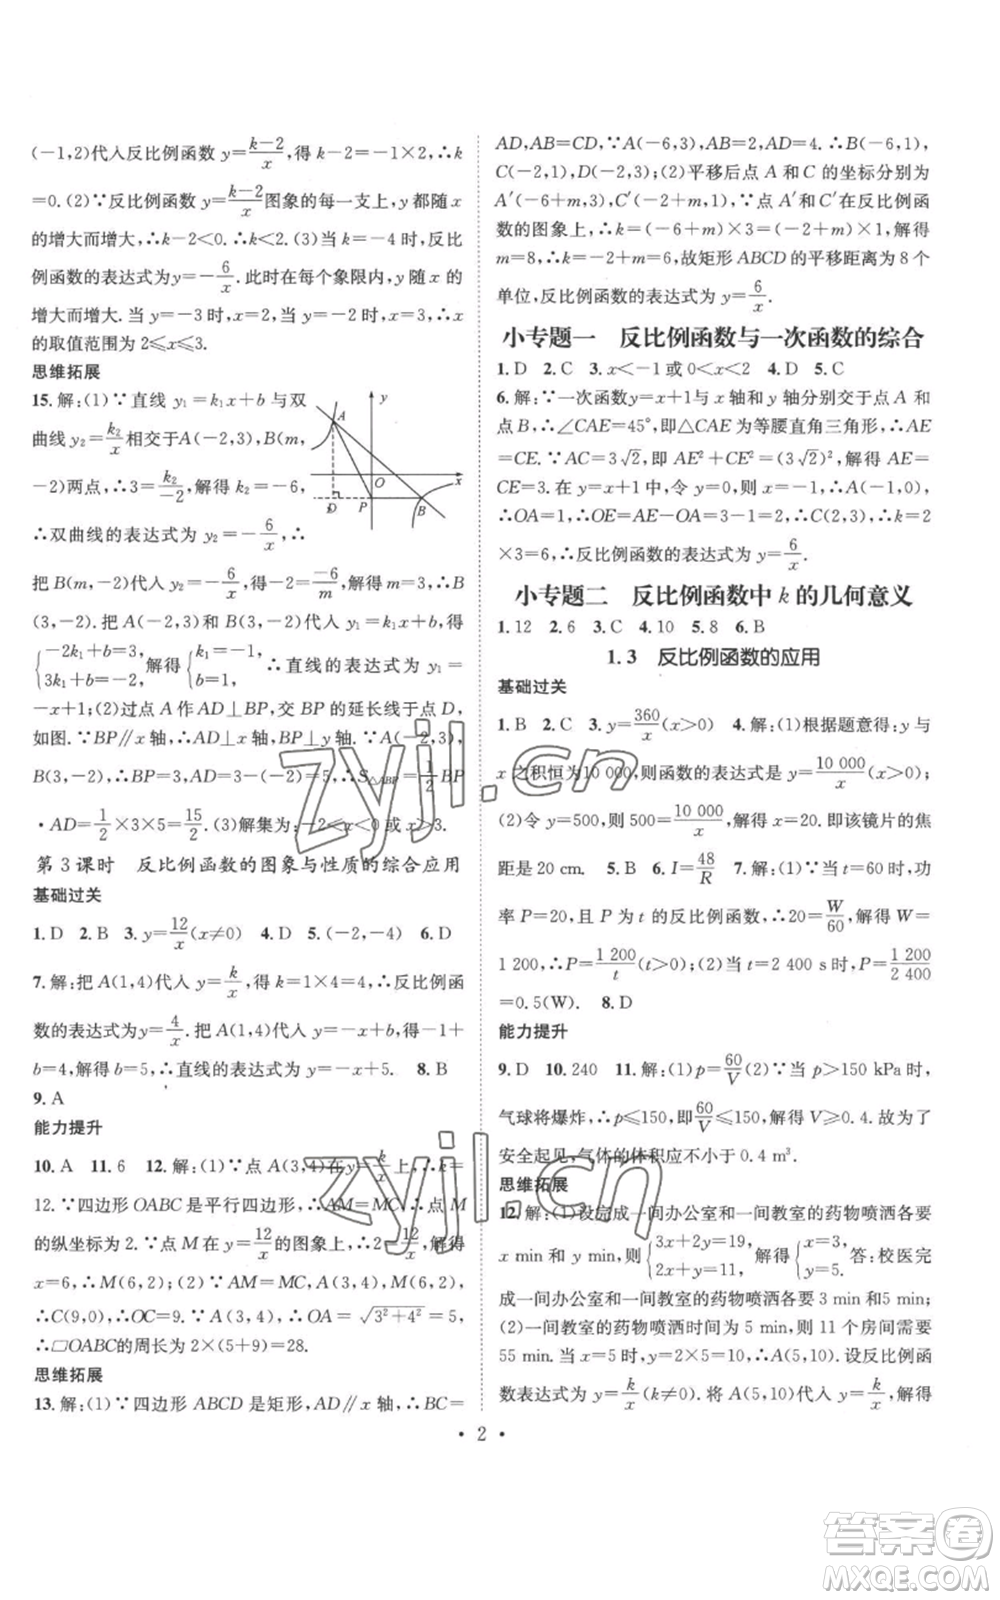 (-1,2)代入反比例函数 y=\frac{k-2}{x},得 k-2=-1×2,∴k
=0.(2)∵反比例函数 y=\frac{k-2}{x}图象的每一支上,y 随 x
的增大而增大,∴k-2<0.∴k<2.(3)当 k=-4 时,反比
例函数的表达式为y=-\frac{6}{x}.此时在每个象限内,y 随 x 的
增大而增大.当 y=-3 时,x=2,当 y=-2 时,x=3,∴x
的取值范围为 2≤x≤3.
思维拓展
15.解:(1)∵直线 y₁=k₁x+b 与双
曲线 y₂=\frac{k₂}{x}相交于A(-2,3),B(m,
-2)两点,∴3=\frac{k₂}{-2},解得 k₂=-6,
∴双曲线的表达式为 y₂=-\frac{6}{x},∴
把 B(m,-2)代入 y₂=-\frac{6}{x},得-2=\frac{-6}{m},解得 m=3,∴B
(3,-2).把点 A(-2,3)和 B(3,-2)代入 y₁=k₁x+b,得
{-2k₁+b=3, 3k₁+b=-2, 解得{k₁=-1, b=1, ∴直线的表达式为 y₁=
-x+1;(2)过点 A 作 AD⊥BP,交 BP 的延长线于点 D,
如图.∵BP∥x 轴,∴AD⊥x 轴,BP⊥y 轴.∵A(-2,3),
B(3,-2),∴BP=3,AD=3-(-2)=5,∴S△ABP=\frac{1}{2}BP
·AD=\frac{1}{2}×3×5=\frac{15}{2}.(3)解集为:-2<x<0 或 x>3.
第 3 课时 反比例函数的图象与性质的综合应用
基础过关
1.D 2.B 3.y=\frac{12}{x}(x≠0) 4.D 5.(-2,-4) 6.D
7.解:把 A(1,4)代入 y=\frac{k}{x},得 k=1×4=4,∴反比例函
数的表达式为y=\frac{4}{x}.把 A(1,4)代入 y=-x+b,得-1+
b=4,∴b=5,∴直线的表达式为 y=-x+5. 8.B
9.A
能力提升
10.A 11.6 12.解:(1)∵点 A(3,4)在 y=\frac{k}{x}上,∴k=
12.∵四边形 OABC 是平行四边形,∴AM=MC,∴点 M
的纵坐标为 2.∵点 M 在 y=\frac{12}{x}的图象上,∴2=\frac{12}{x},解得
x=6,∴M(6,2);(2)∵AM=MC,A(3,4),M(6,2),
∴C(9,0),∴OC=9.∵A(3,4),∴OA=\sqrt{3²+4²}=5,
∴□OABC的周长为 2×(5+9)=28.
思维拓展
13.解:(1)∵四边形 ABCD 是矩形,AD∥x 轴,∴BC=
AD,AB=CD,∵A(-6,3),AB=2,AD=4.∴B(-6,1),
C(-2,1),D(-2,3);(2)平移后点 A 和 C 的坐标分别为
A′(-6+m,3),C′(-2+m,1),∵点 A′和 C′在反比例函
数的图象上,∴k=(-6+m)×3=(-2+m)×1,解得
m=8,∴k=-2+m=6,故矩形 ABCD 的平移距离为 8 个
单位,反比例函数的表达式为 y=\frac{6}{x}.
小专题一 反比例函数与一次函数的综合
1.D 2.C 3.x<-1 或 0<x<2 4.D 5.C
6.解:∵一次函数 y=x+1与 x 轴和 y 轴分别交于点 A 和
点 B,∴∠CAE=45°,即△CAE 为等腰直角三角形,∴AE
=CE.∵AC=3\sqrt{2},即 AE²+CE²=(3\sqrt{2})²,解得 AE=
CE=3.在 y=x+1 中,令 y=0,则 x=-1,∴A(-1,0),
∴OA=1,∴OE=AE-OA=3-1=2,∴C(2,3),∴k=2
×3=6,∴反比例函数的表达式为 y=\frac{6}{x}.
小专题二 反比例函数中 k 的几何意义
1.12 2.6 3.C 4.10 5.8 6.B
1.3 反比例函数的应用
基础过关
1.B 2.C 3.y=\frac{360}{x}(x>0) 4.解:(1)根据题意得:y 与
x 之积恒为10 000,则函数的表达式是 y=\frac{10 000}{x}(x>0);
(2)令 y=500,则 500=\frac{10 000}{x},解得 x=20.即该镜片的焦
距是 20 cm. 5.B 6.I=\frac{48}{R} 7.解:(1)当 t=60 时,功
率 P=20,且 P 为 t 的反比例函数,∴20=\frac{W}{60},解得 W=
1 200,∴P=\frac{1 200}{t}(t>0);(2)当 t=2 400 s 时,P=\frac{1 200}{2 400}
=0.5(W). 8.D
能力提升
9.D 10.240 11.解:(1)p=\frac{60}{V}(2)∵当 p>150 kPa 时,
气球将爆炸,∴p≤150,即\frac{60}{V}≤150,解得 V≥0.4.故为了
安全起见,气体的体积应不小于 0.4 m³.
思维拓展
12.解:(1)设完成一间办公室和一间教室的药物喷洒各要
x min 和 y min,则{3x+2y=19, 2x+y=11, 解得{x=3, y=5. 答:校医完
成一间办公室和一间教室的药物喷洒各要 3 min和5 min;
(2)一间教室的药物喷洒时间为 5 min,则 11 个房间需要
55 min.当 x=5 时,y=2x=10,∴A(5,10).设反比例函
数表达式为 y=\frac{k}{x}(k≠0).将 A(5,10)代入 y=\frac{k}{x},解得
A
y
O
x
D
P
B
· 2 ·
zyjl.cn
zyjl.cn
答案圈
MXQE.COM